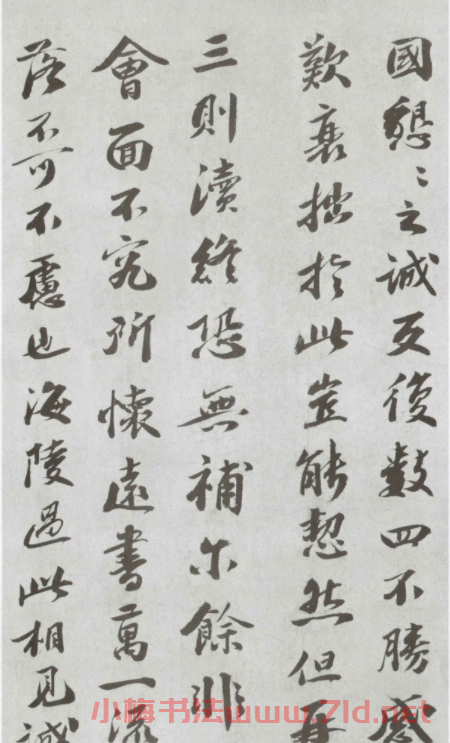 國懇〻之誠反復數四不勝
歎衰拙於此豈能恝然但再
三則瀆終恐無補尔餘非
會面不究所懷遠書萬一
落不可不慮也海陵過此相見誠
小梅书法www.7ld.net